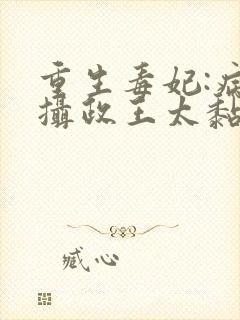 重生毒妃:病
攝政王太黏
臧心